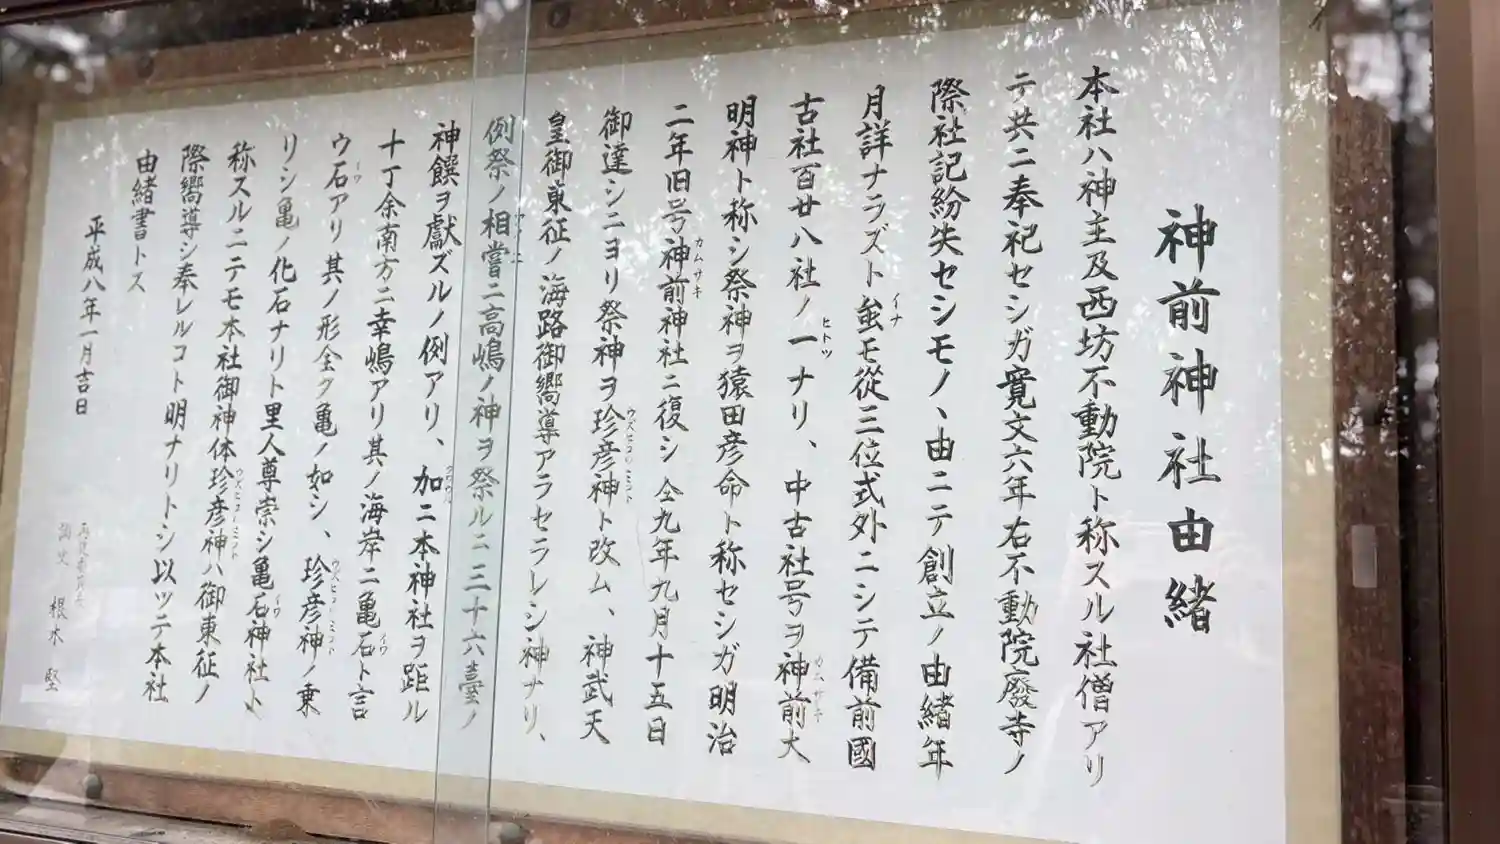 神前神社由緒
本社ハ神主及西坊不動院ト称スル社僧アリ
テ共ニ奉祀セシガ寛文六年右不動院廢寺ノ
際社記紛失セシモノヽ由ニテ創立ノ由緒年
月詳ナラズト虽モ從三位式外ニシテ備前國
古社百廿八社ノ一ナリ、中古社号ヲ神前大
明神ト称シ祭神ヲ猿田彦命ト称セシガ明治
二年旧号神前神社ニ復シ仝九年九月十五日
御達シニヨリ祭神ヲ珍彦神ト改ム、神武天
皇御東征ノ海路御嚮導アラセラレシ神ナリ、
例祭ノ相嘗ニ高嶋ノ神ヲ祭ルニ三十六臺ノ
神饌ヲ獻ズルノ例アリ、加ニ本神社ヲ距ル
十丁余南方ニ幸嶋アリ其ノ海岸ニ亀石ト言
ウ石アリ其ノ形全ク亀ノ如シ、珍彦神ノ乗
リシ亀ノ化石ナリト里人尊崇シ亀石神社ト
称スルニテモ本社御神体珍彦神ハ御東征ノ
際嚮導シ奉レルコト明ナリトシ以ッテ本社
由緒書トス
平成八年一月吉日
根木 堅